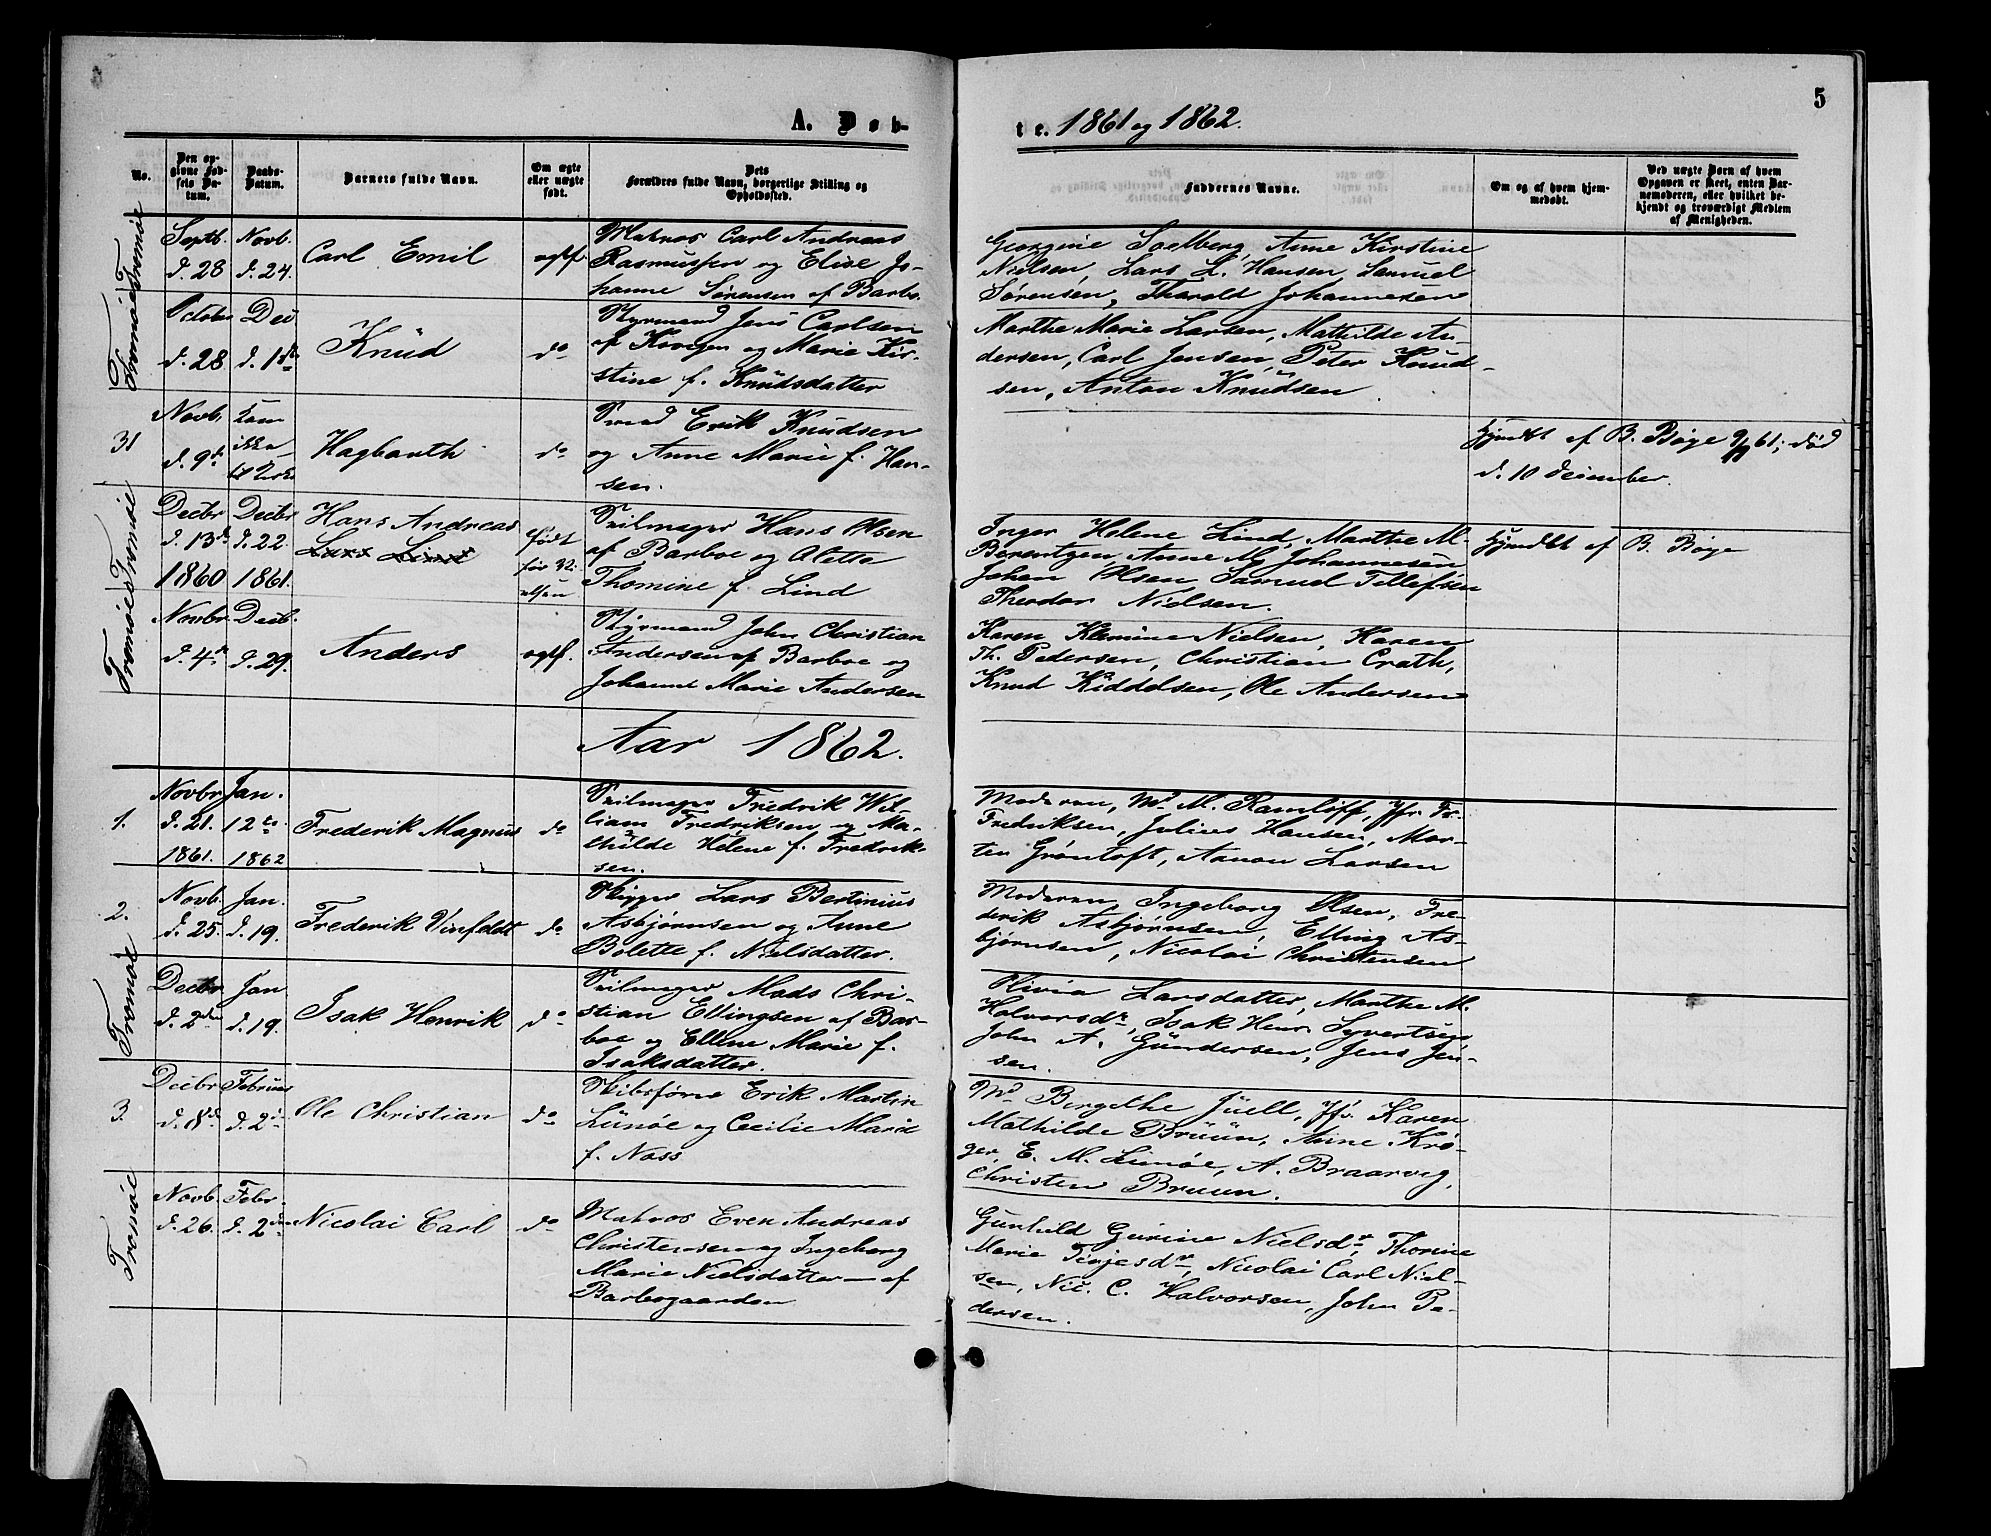 5
A. Døb-
te. 1861 og 1862.
No.
Den op-
givne Fød-
sels Da-
tum.
Daabs-
Datum.
Barnets fulde Navn.
Om ægte
eller uægte
født.
Dets
Forældres fulde Navn, borgerlige Stilling og
Opholdssted.
Faddernes Navne.
Om og af hvem hjem-
medøbt.
Ved uægte Børn af hvem
Opgaven er skeet, enten Bar-
nemoderen, eller hvilket be-
kjendt og troværdigt Medlem
af Menigheden.
Tromøe
Septb.
d. 28
Novb.
d. 24.
Carl Emil
ægtf.
Matros Carl Andreas
Rasmussen og Elise Jo-
hanne Sørensen af Barbo.
Georgine Soelberg, Anne Kirstine
Nielsen, Lars L. Hansen, Samuel
Sørensen, Tharald Johannesen
Tromøe
October
d. 28
Dec
d. 1ste
Knud
do
Styrmand Jens Carlsen
af Kovigen og Marie Kir-
stine f. Knudsdatter
Marthe Marie Larsen, Mathilde An-
dersen, Carl Jensen, Peter Knud-
sen, Anton Knudsen.
31
Novb.
d. 9de
kom
ikke
Hagbarth
do
Erik Knudsen
og Anne Marie f. Han-
sen.
hjmdbt af B. Bøge 9/11 61; død
d. 10 December.
Tromøe
Decbr
d. 13de
1860
Decbr
d. 22.
1861.
Hans Andreas
Lars Lind
født
før
Seilmager Hans Olsen
af Barboe og Alette
Thomine f. Lind
Inger Helene Lind, Marthe M.
Berentzen, Anne M. Johannesen
Johan Olsen, Samuel Tellefsen
Theodor Nielsen.
hjmdbt af B. Bøge
Tromøe
Novbr
d. 4de
Decb.
d. 29.
Anders
ægtf.
Styrmand John Christian
Andersen af Barboe og
Johanne Marie Andersen
Karen Klemine Nielsen, Karen
Th. Pedersen, Christian Crath,
Knud Kiddelsen, Ole Andersen
Aar 1862.
1.
Novbr
d. 21.
1861.
Jan.
12te
1862
Frederik Magnus
do
Seilmager Fredrik Wil-
liam Fredriksen og Ma-
thilde Helene f. Fredrik-
sen.
Moderen, Md. M. Ramløff, Jfr. Fr.
Fredriksen, Julius Hansen, Mor-
ten Grøntoft, Aanon Larsen
2.
Novb.
d. 25.
Jan.
d. 19.
Frederik Vinfeldt
do
Skipper Lars Bertinius
Asbjørnsen og Anne
Bolette f. Nielsdatter.
Moderen, Ingeborg Olsen, Fre-
derik Asbjørnsen, Elling As-
bjørnsen, Nicolai Christensen
Tromøe
Decbr
d. 2den
Jan
d. 19.
Isak Henrik
do
Seilmager Mads Chri-
stian Ellingsen af Bar-
boe og Ellene Marie f.
Isaksdatter.
Olivia Larsdatter, Marthe M.
Halvorsdr, Isak Henr. Syvertsen
John A. Gundersen, Jens Jen-
sen.
3.
Decbr
d. 8de
Februar
d. 2den
Ole Christian
do
Skibsfører Erik Martin
Lunøe og Cecilie Marie
f. Næss
Md Bergithe Juell, Jfr. Karen
Mathilde Bruun, Anne Krø-
ger, E. M. Lunøe, A. Braarvig,
Christen Bruun.
Tromøe
Novb.
d. 26.
Febr.
d. 2den
Nicolai Carl
do
Matros Even Andreas
Christensen og Ingeborg
Marie Nielsdatter af
Barbogaarden
Gunhild Gurine Nielsdr, Thorine
Marie Terjesdr, Nicolai Carl Niel-
sen, Nic. C. Halvorsen, John Pe-
dersen.